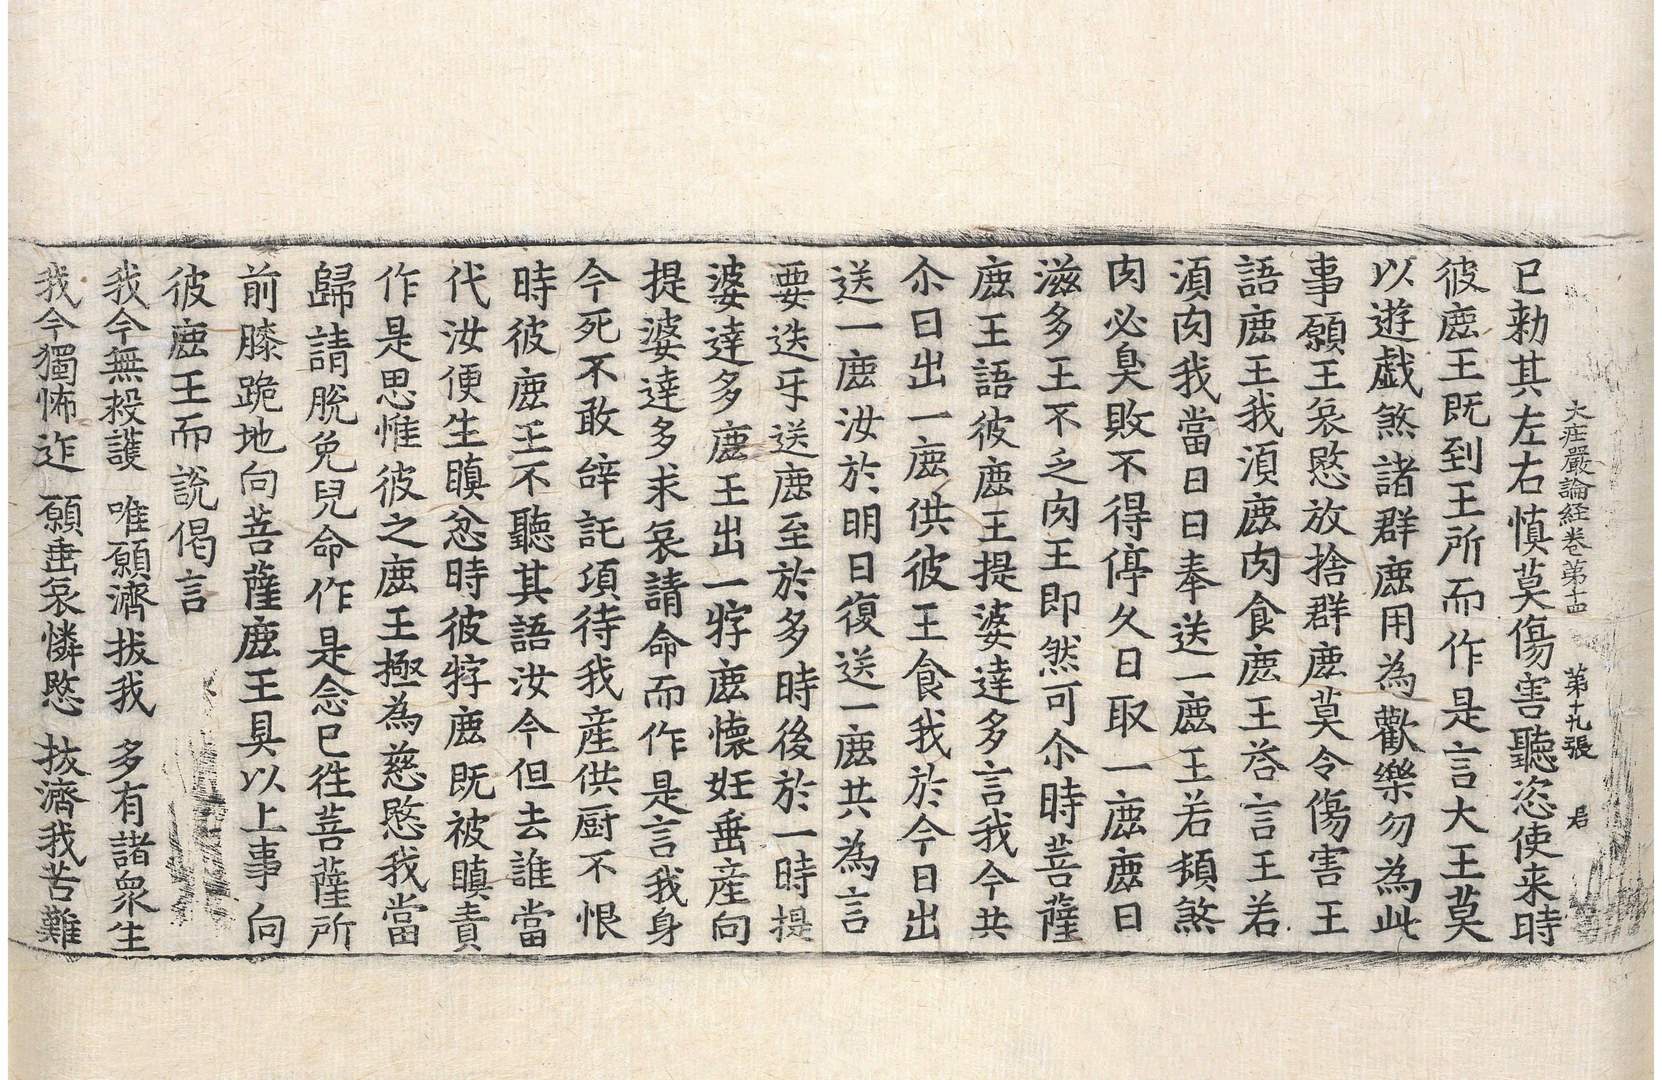 大莊嚴論経卷苐十四 苐十九張 君
已勑其左右慎莫傷害聽恣使来時
彼鹿王既到王所而作是言大王莫
以遊戯煞諸群鹿用為歡樂勿為此
事願王哀愍放捨群鹿莫令傷害王
語鹿王我湏鹿肉食鹿王荅言王若
湏肉我當日日奉送一鹿王若頻煞
肉必臭敗不得停久日取一鹿鹿日
滋多王不乏肉王即然可尒時菩薩
鹿王語彼鹿王提婆達多言我今共
尒日出一鹿供彼王食我於今日出
送一鹿汝於明日復送一鹿共為言
要迭㸦送鹿至於多時後於一時提
婆達多鹿王出一牸鹿懷妊垂産向
提婆達多求哀請命而作是言我身
今死不敢辝託項待我産供厨不恨
時彼鹿王不聽其語汝今但去誰當
代汝便生瞋忿時彼牸鹿既被瞋責
作是思惟彼之鹿王極為慈愍我當
歸請脫免兒命作是念已往菩薩所
前膝跪地向菩薩鹿王具以上事向
彼鹿王而說偈言
我今無投護 唯願濟拔我 多有諸衆生
我今獨怖迮 願垂哀憐愍 拔濟我苦難